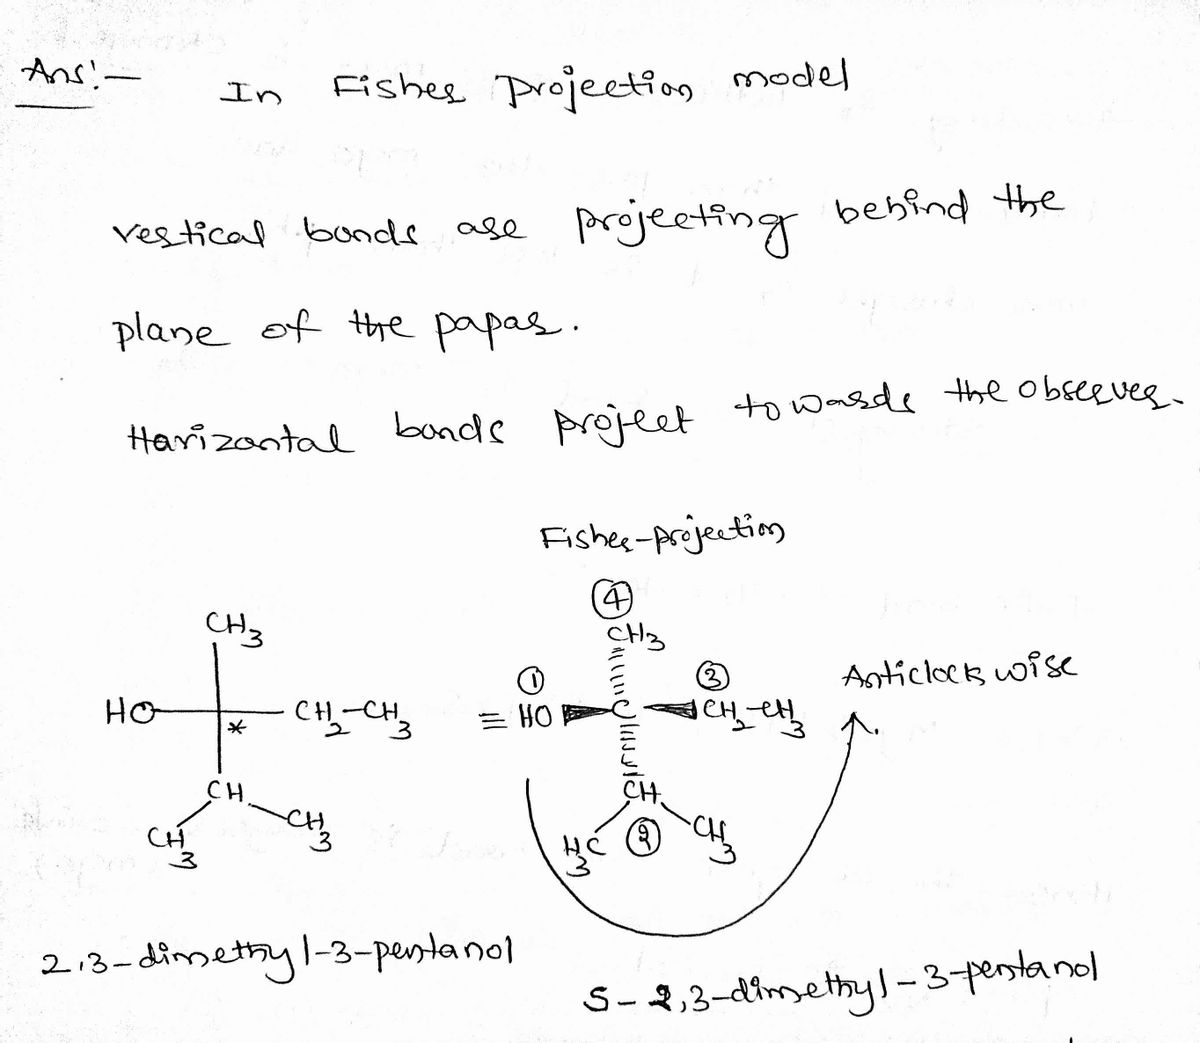 Ans:-
In Fisher projection model
vertical bonds are projecting behind the
plane of the papar.
Harizontal bonds project towards the observer.
Fisher-projection
④
CH3
CH3
① ③ Anticlockwise
HO * CH2-CH3 ≡ HO C CH2-CH3
CH CH
CH3 CH3 H3C ② CH3
2,3-dimethyl-3-pentanol
S-2,3-dimethyl-3-pentanol